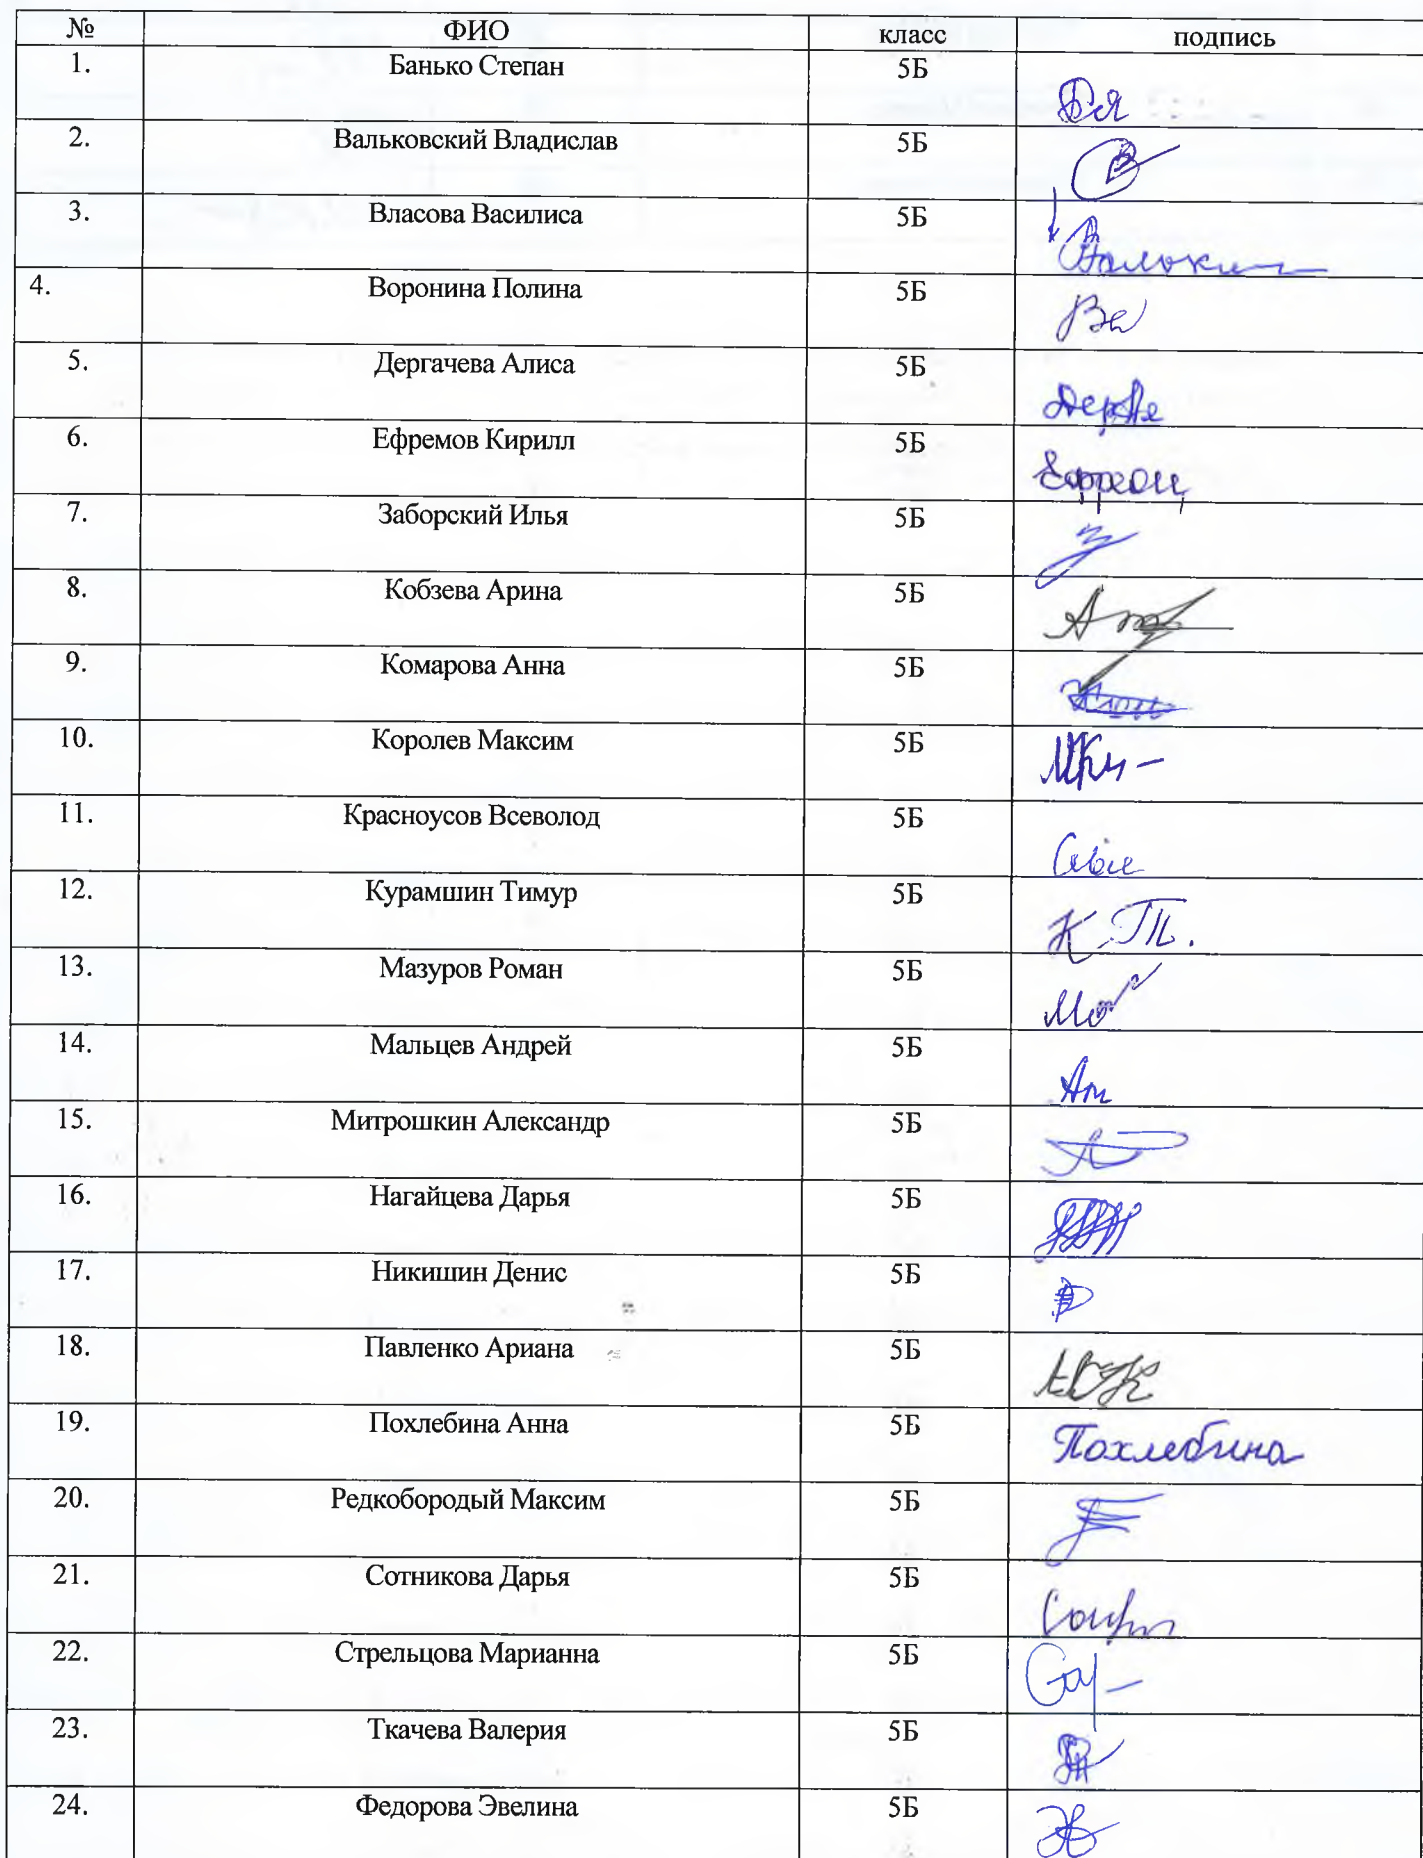 № ФИО класс подпись
1. Банько Степан 5Б
2. Вальковский Владислав 5Б
3. Власова Василиса 5Б
4. Воронина Полина 5Б
5. Дергачева Алиса 5Б
6. Ефремов Кирилл 5Б
7. Заборский Илья 5Б
8. Кобзева Арина 5Б
9. Комарова Анна 5Б
10. Королев Максим 5Б
11. Красноусов Всеволод 5Б
12. Курамшин Тимур 5Б К.Т.
13. Мазуров Роман 5Б
14. Мальцев Андрей 5Б
15. Митрошкин Александр 5Б
16. Нагайцева Дарья 5Б
17. Никишин Денис 5Б
18. Павленко Ариана 5Б
19. Похлебина Анна 5Б Похлебина
20. Редкобородый Максим 5Б
21. Сотникова Дарья 5Б
22. Стрельцова Марианна 5Б
23. Ткачева Валерия 5Б
24. Федорова Эвелина 5Б